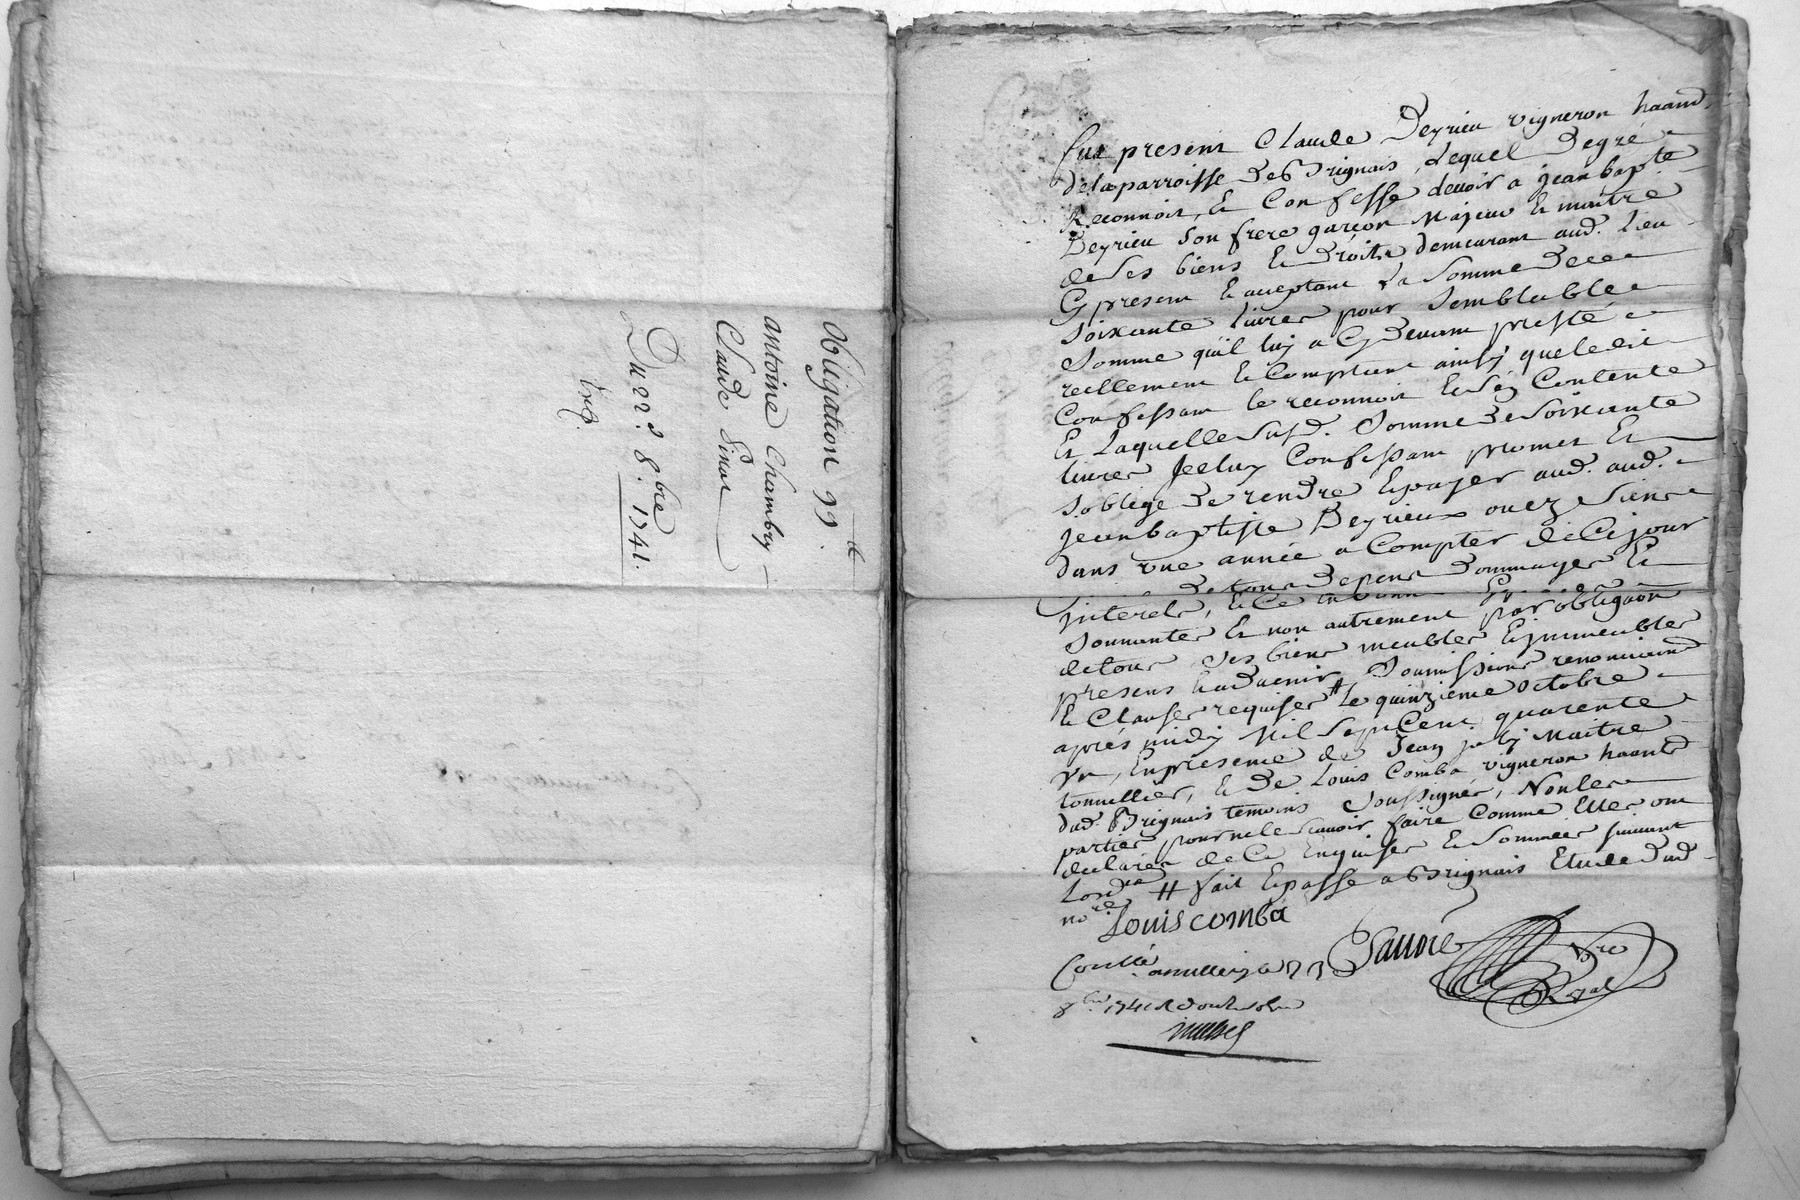 Obligation 99.lt
antoine Chambry
Claude
Du 22.e 8.bre 1741.
Exp.
Fut present Claude Deyrieu vigneron haant
dela parroisse de Brignais, Lequel de gré
Reconnoit, et Confesse devoir a jean bap.te
Deyrieu Son frere garçon Majeur et maitre
de Ses biens et droits demeurant aud. lieu
Cy present et acceptant La Somme de
Soixante livres pour Semblable
Somme quil luy a Cy devant presté
reellement et Comptant ainsy que ledit
Confessant le reconnoit et Sen Contente
Et Laquelle Susd. Somme de Soixante
livres Jceluy Confessant promet Et
Soblige de rendre Et payer aud. aud.
jean baptiste Deyrieu ou ez Siens
dans une année a Compter de Ce jour
de tous depens dommages Et
jnterets, et Ce en bonne
Sonnantes Et non autrement par obligaon
de tous Ses biens meubles Et jmmeubles
presens et advenir, Soumissions renonciaons
et Clauses requises # le quinzieme octobre
aprés midy Mil Sept Cent quarente
un, En presence de Jean joly Maitre
tonnellier, et de Louis Comba vigneron haants
dud. Brignais temoins Soussignés, Non les
parties pour ne le Scavoir faire Comme Elles ont
declarés de Ce Enquises et Sommées suivant
Lord.ce # fait Et passé a Brignais Etude dud
no.re
Louis comba
Savoie
N.re
Royal
Conllé
8.bre 1741 R douze sols